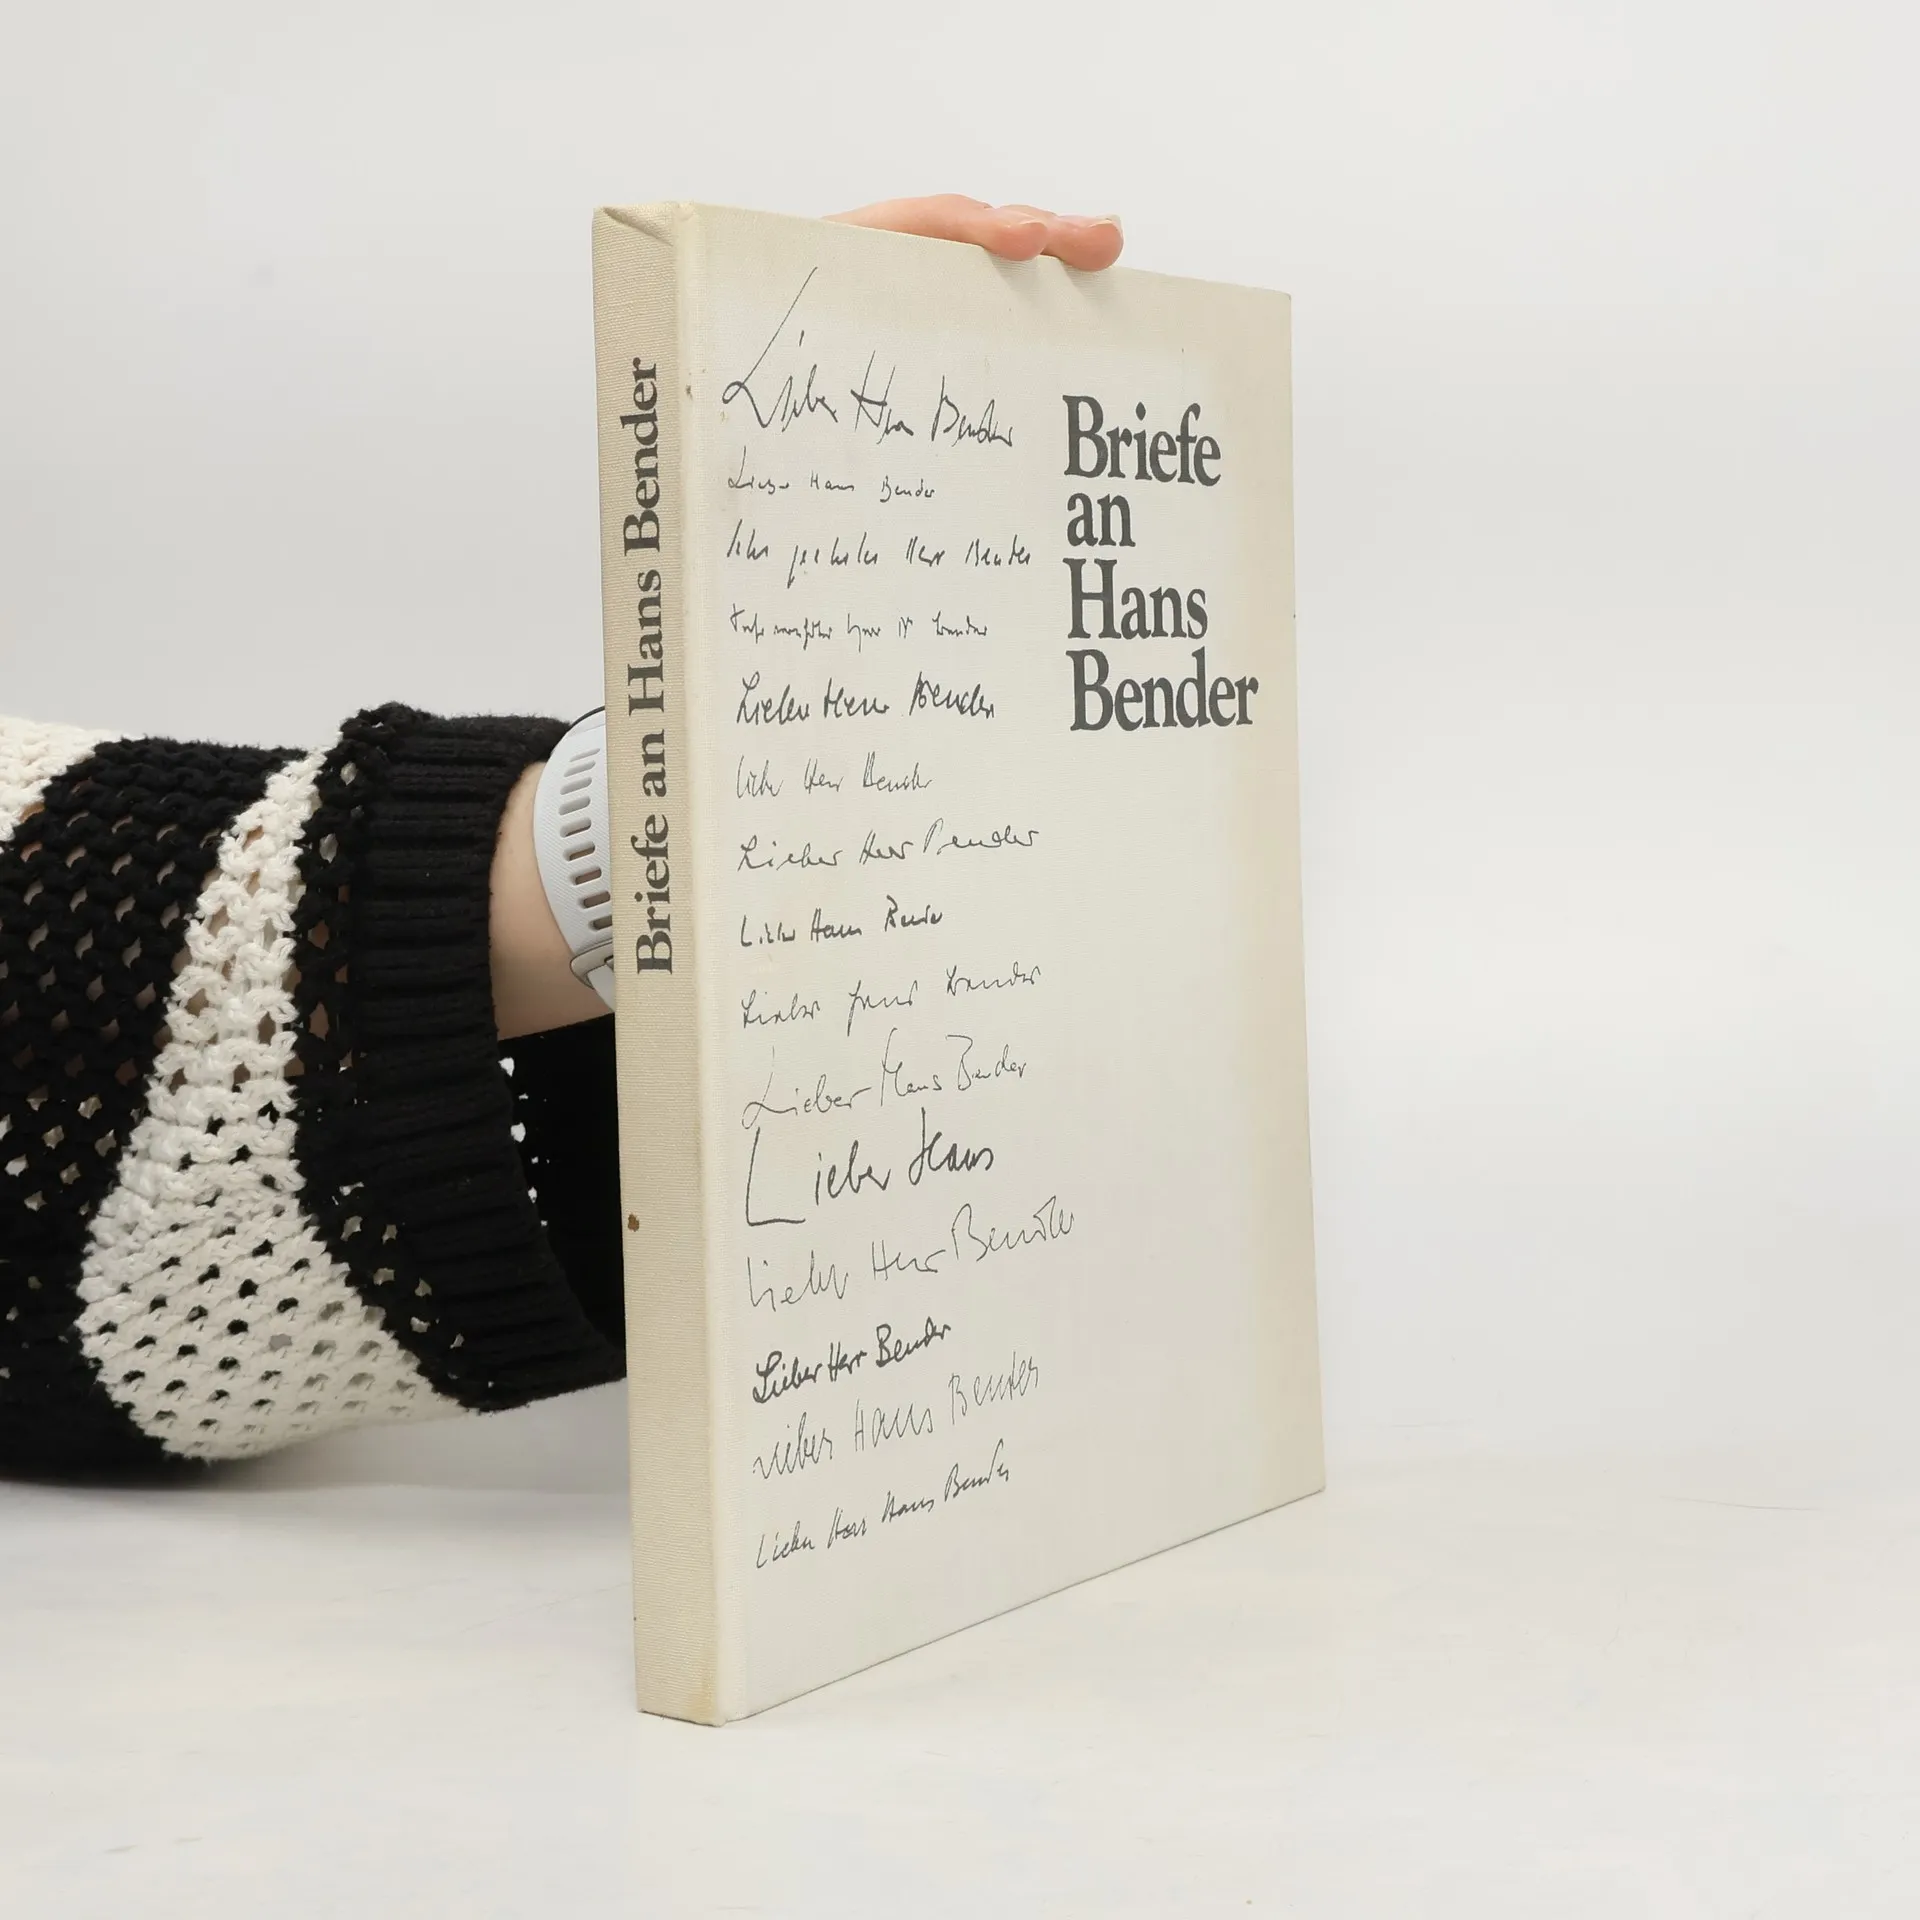 Briefe an Hans Bender
Lieber Herr Bender
Lieber Hans Bender
Sehr geehrter Herr Bender
Bender
Lieber Herr Bender
Lieber Herr Bender
Lieber Herr Bender
Lieber Hans Bender
Lieber Hans Bender
Lieber Hans Bender
Lieber Hans
Lieber Herr Bender
Lieber Herr Bender
Lieber Hans Bender
Lieber Herr Hans Bender
Briefe
an
Hans
Bender